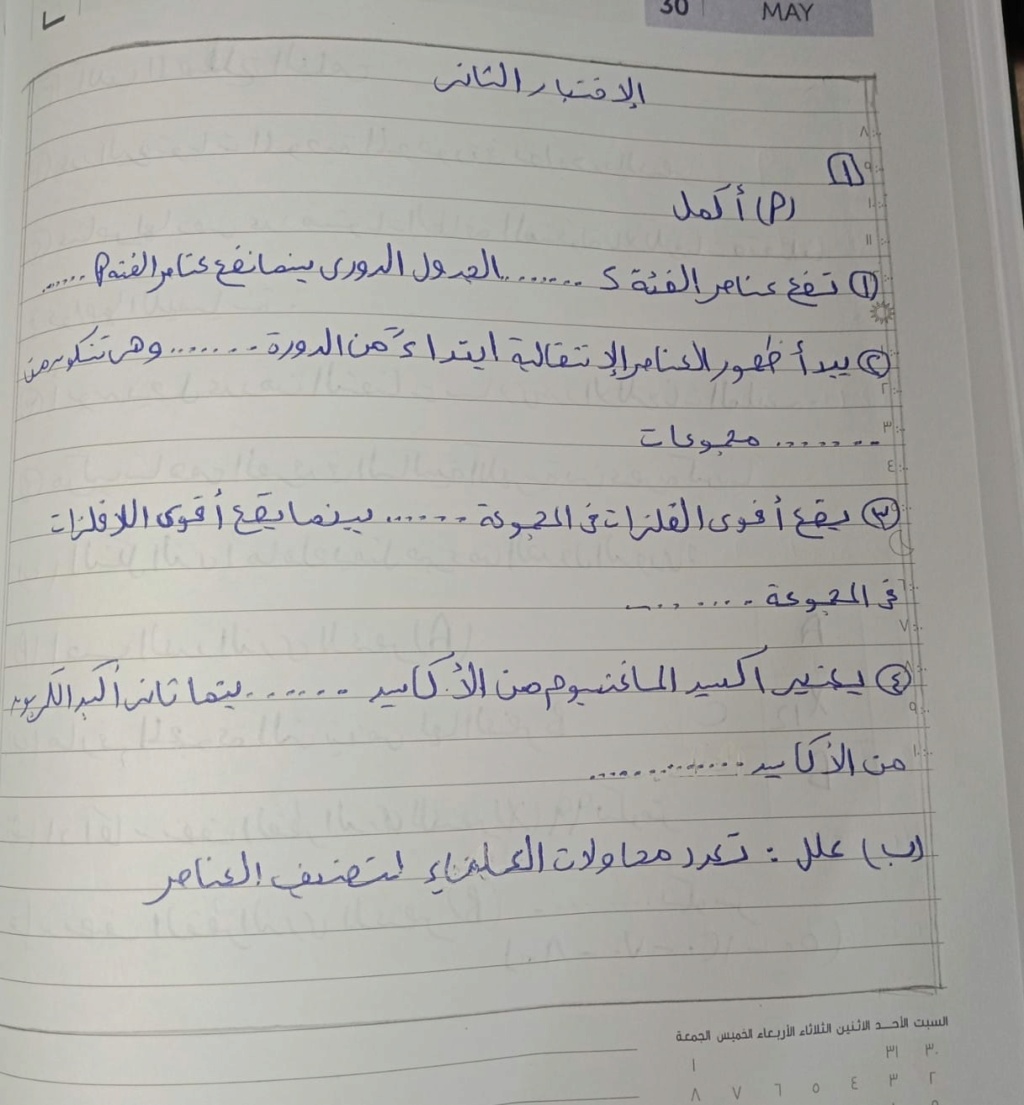 30 MAY
الإختبار الثانى
٨
٩
①
١٠
(P) أكمل
١١
① تقع عناصر الفئة S ....... الجدول الدورى بينما تقع عناصر الفئة P ......
② يبدأ ظهور العناصر الإنتقالية ابتداءً من الدورة ....... وهى تتكون من
٢
٣
....... مجموعات
٤
③ يقع أقوى الفلزات فى المجموعة ...... بينما يقع أقوى اللافلزات
٦
فى المجموعة .......
٧
④ يعتبر اكسيد الماغنسيوم من الأكاسيد ....... بينما ثانى أكسيد الكربون
٩
١٠
من الأكاسيد ............
(ب) علل : تعدد محاولات العلماء لتصنيف العناصر
السبت الأحد الاثنين الثلاثاء الأربعاء الخميس الجمعة
٣٠ ٣١ ١
٢ ٣ ٤ ٥ ٦ ٧ ٨